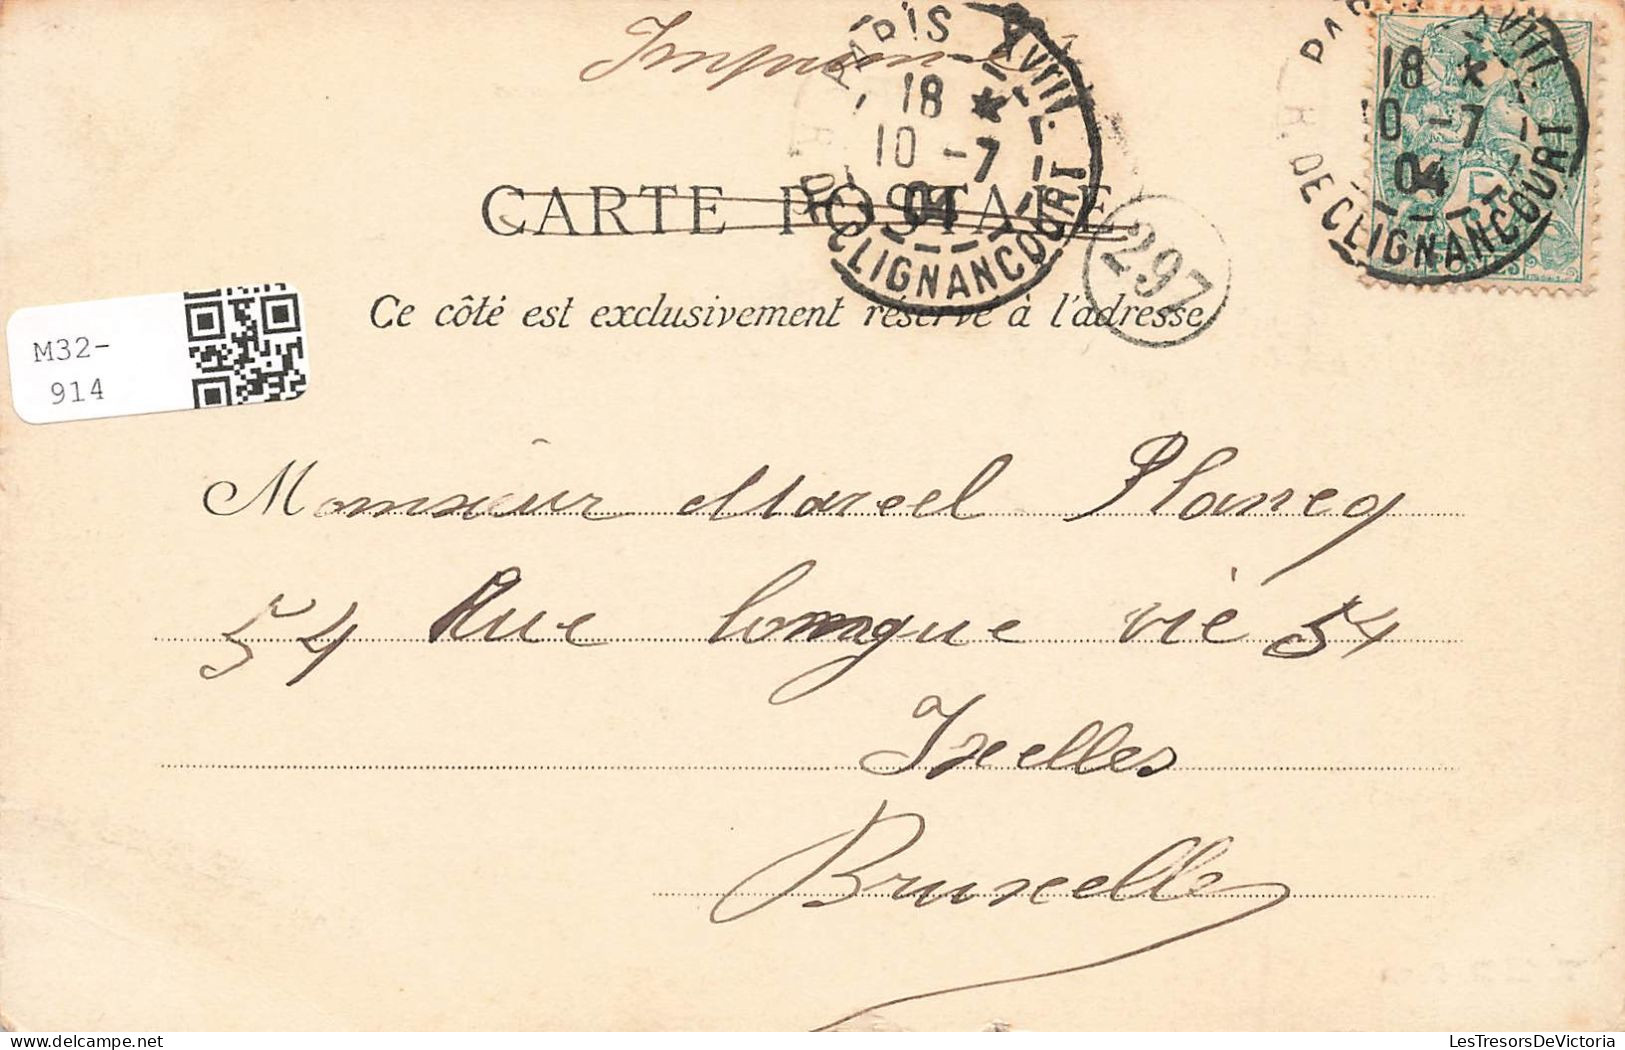 Imprimé
PARIS XVIII
18 *
10 -7
04
R. DE CLIGNANCOURT
PARIS XVIII
18 *
10 -7
04
R. DE CLIGNANCOURT
POSTES
CARTE POSTALE
297
Ce côté est exclusivement réservé à l'adresse
M32-
914
Monsieur Marcel Plancq
54 Rue longue vie 54
Ixelles
Bruxelles
LesTresorsDeVictoria - delcampe.net